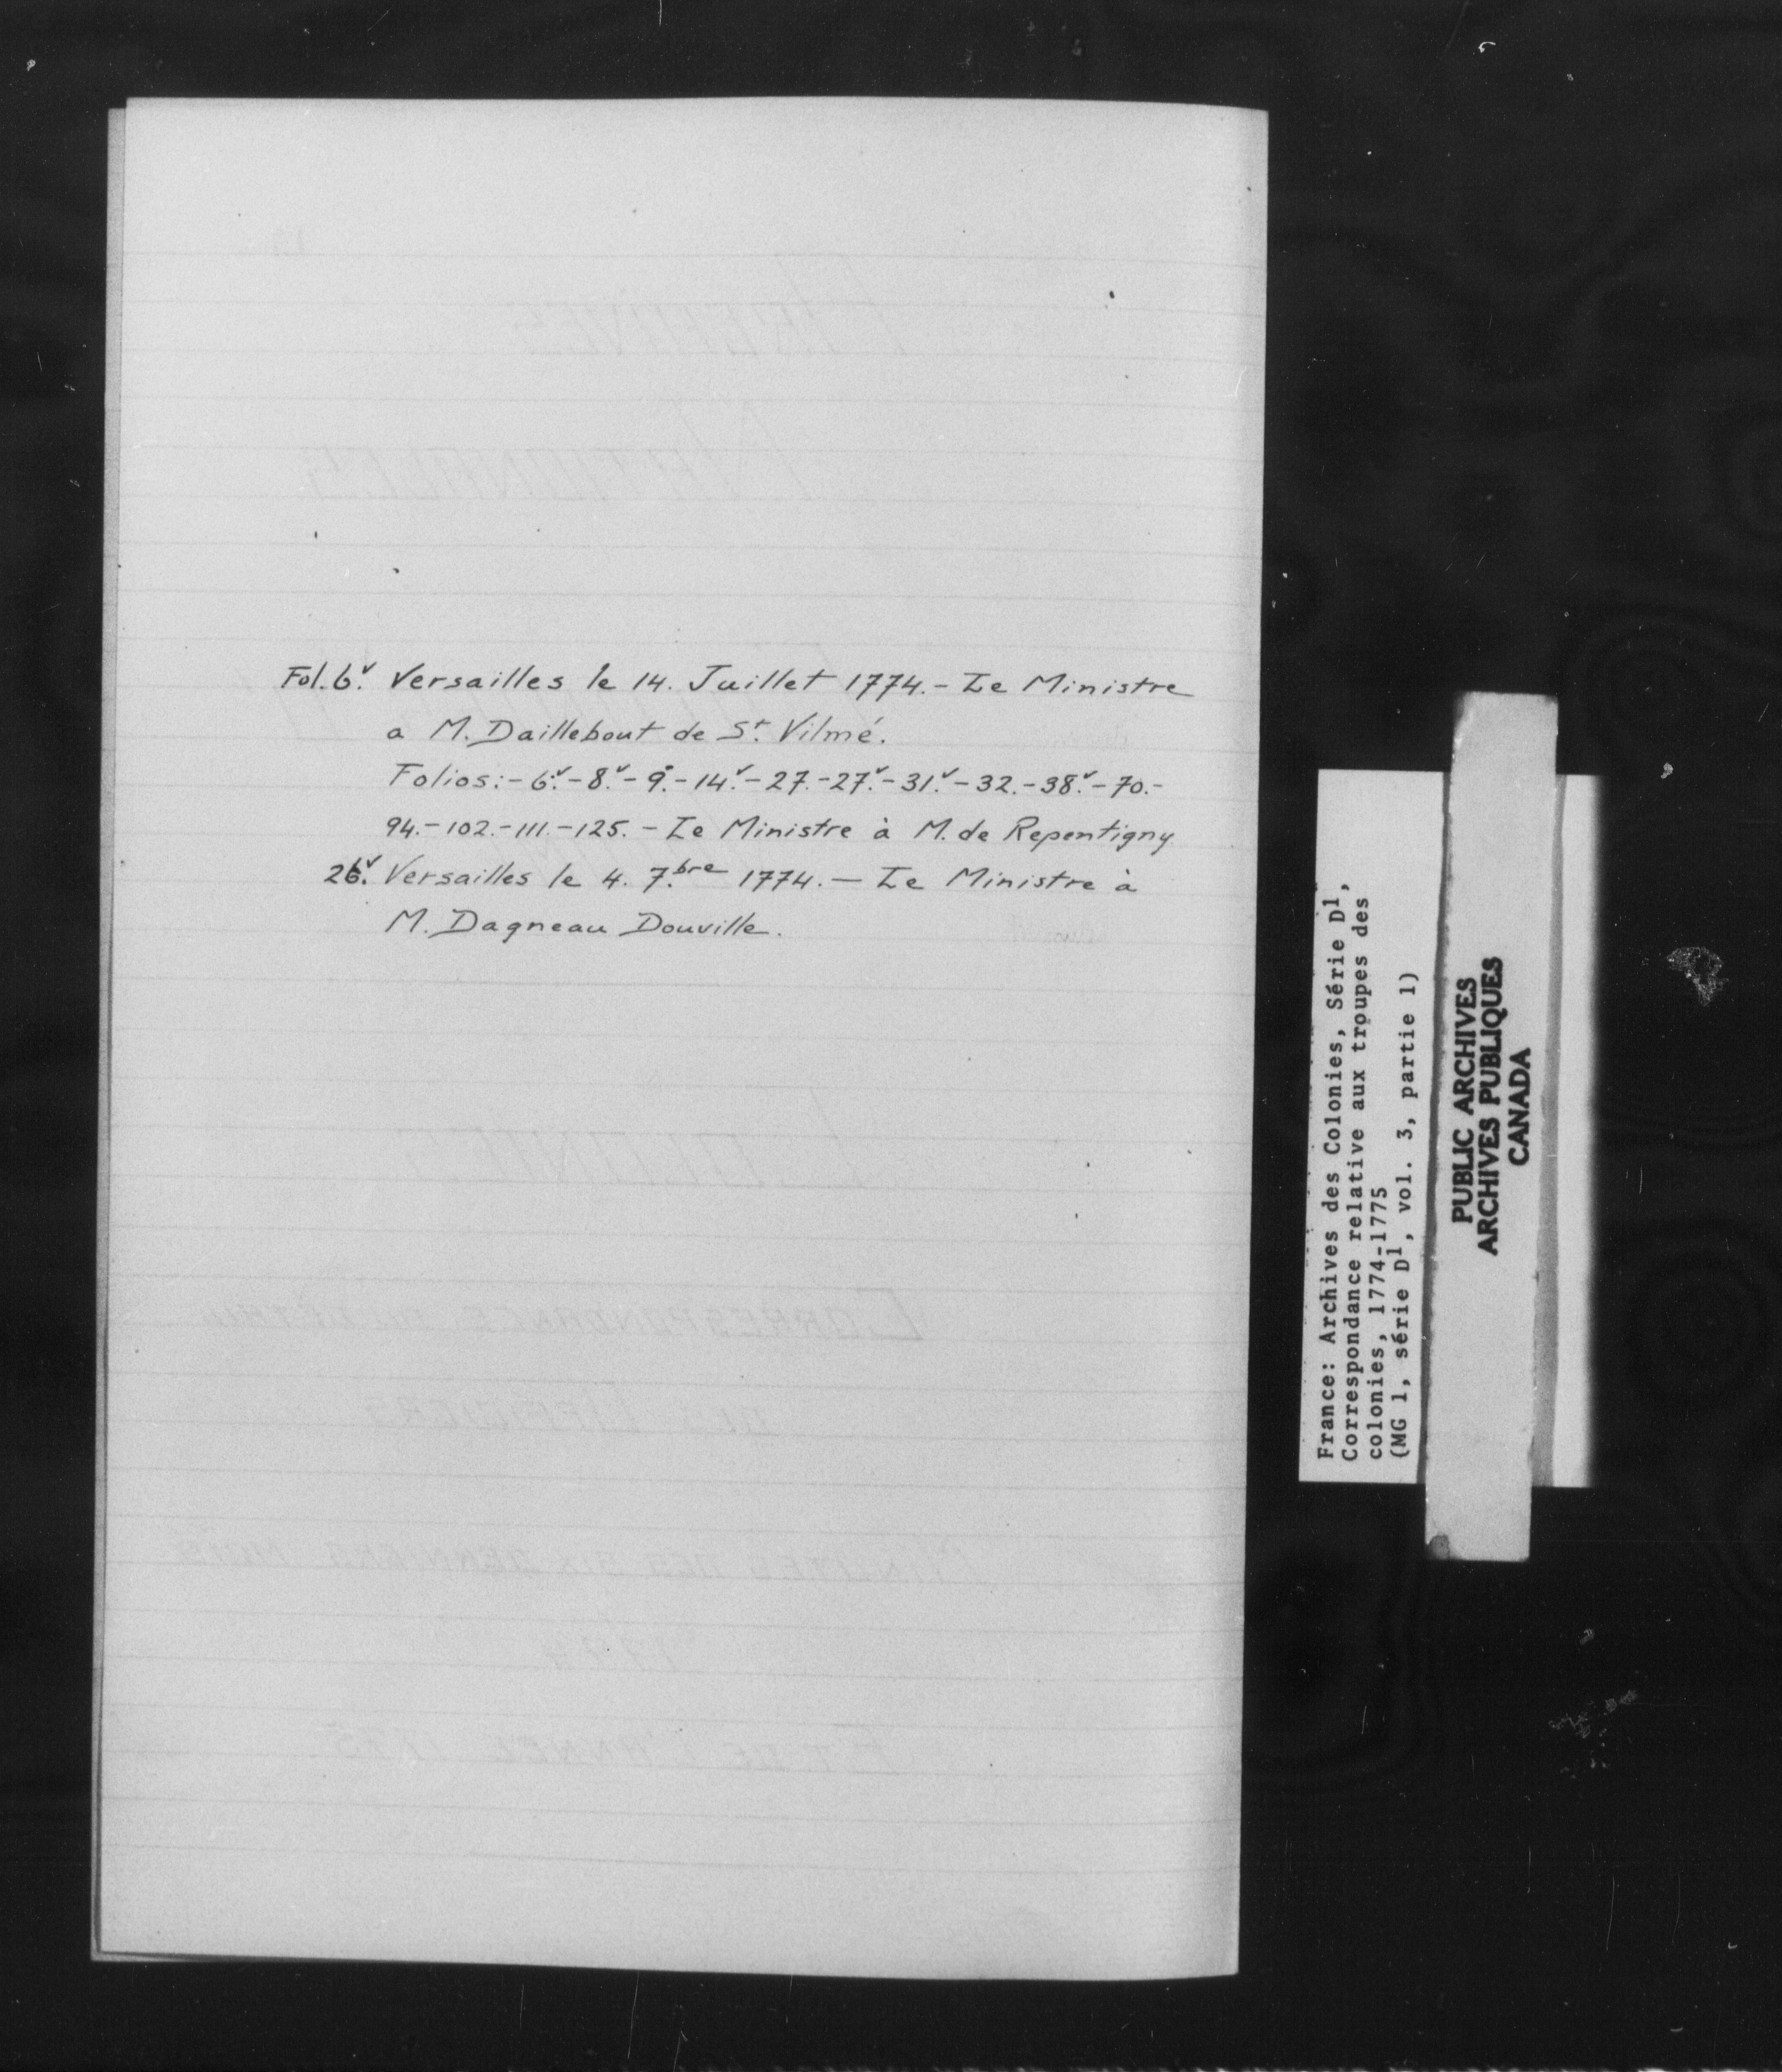 Fol. 6.v Versailles le 14. Juillet 1774.- Le Ministre
a M. Daillebout de St. Vilmé.
Folios:- 6.v- 8.v- 9.- 14.v- 27.-27.v- 31.v- 32.- 38.v- 70.-
94.- 102.- 111.- 125. - Le Ministre à M. de Repentigny
26.v Versailles le 4. 7.bre 1774. — Le Ministre à
M. Dagneau Douville.
France: Archives des Colonies, Série D1,
Correspondance relative aux troupes des
colonies, 1774-1775
(MG 1, série D1, vol. 3, partie 1)
PUBLIC ARCHIVES
ARCHIVES PUBLIQUES
CANADA